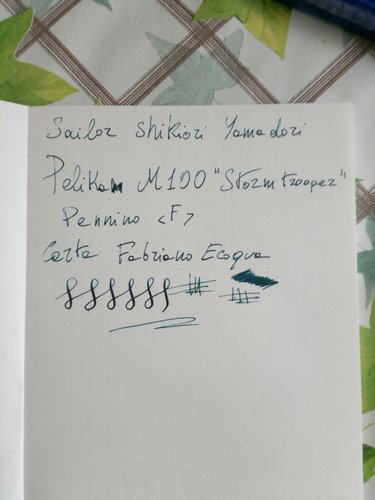 Sailor Shikiori Yamadori
Pelikan M100 "Stormtrooper"
Pennino <F>
Carta Fabriano Ecoqua